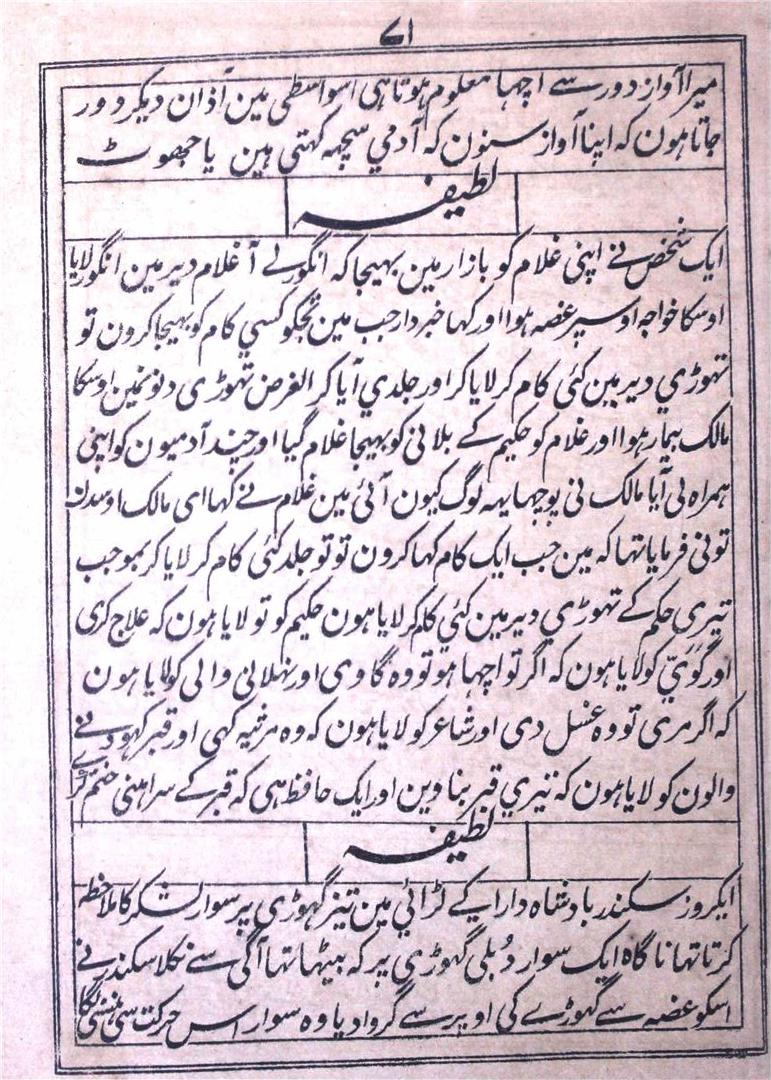 ۷۱
میرا آواز دور سے اچہا معلوم ہوتا ہی اسواسطی مین آذان دیکر دور
جاتا ہون کہ اپنا آواز سنون کہ آدمي سچہہ کہتی ہین یا جھوٹ
لطیفہ
ایک شخص نے اپنی غلام کو بازار مین بہیجا کہ انگور لے آ غلام دیر مین انگور لایا
اوسکا خواجہ اوسپر غصہ ہوا اور کہا خبردار جب مین تجکو کسي کام کو بہیجا کرون تو
تہوڑي دیر مین کئی کام کر لایا کر اور جلدي آیا کر الغرض تہوڑی دنونمین اوسکا
مالک بیمار ہوا اور غلام کو حکیم کے بلانی کو بہیجا غلام گیا اور چند آدمیون کو اپنی
ہمراہ لی آیا مالک نی پوچہا یہہ لوگ کیون آئی مین غلام نے کہا ای مالک اوسدن
تونی فرمایا تہا کہ مین جب ایک کام کہا کرون تو تو جلد کئی کام کر لایا کر بموجب
تیری حکم کے تہوڑي دیر مین کئي کام کر لایا ہون حکیم کو تو لایا ہون کہ علاج کری
اور گویّي کو لایا ہون کہ اگر تو اچہا ہو تو وہ گاوی اور نہلانی والی کو لایا ہون
کہ اگر مری تو وہ غسل دی اور شاعر کو لایا ہون کہ وہ مرثیہ کہی اور قبر کہودنے
والون کو لایا ہون کہ تیري قبر بناوین اور ایک حافظ ہی کہ قبر کے سراہنی ختم کرے
لطیفہ
ایکروز سکندر بادشاہ دارا کے لڑائي مین تیز گہوڑی پر سوار لشکر کا ملاحظہ
کرتا تہا ناگاہ ایک سوار دُبلی گہوڑی پر کہ بیٹہا تہا آگی سے نکلا سکندر نے
اسکو غضہ سے گہوڑے کی اوپر سے گروا دیا وہ سوار اس حرکت سی ہنسنی لگا